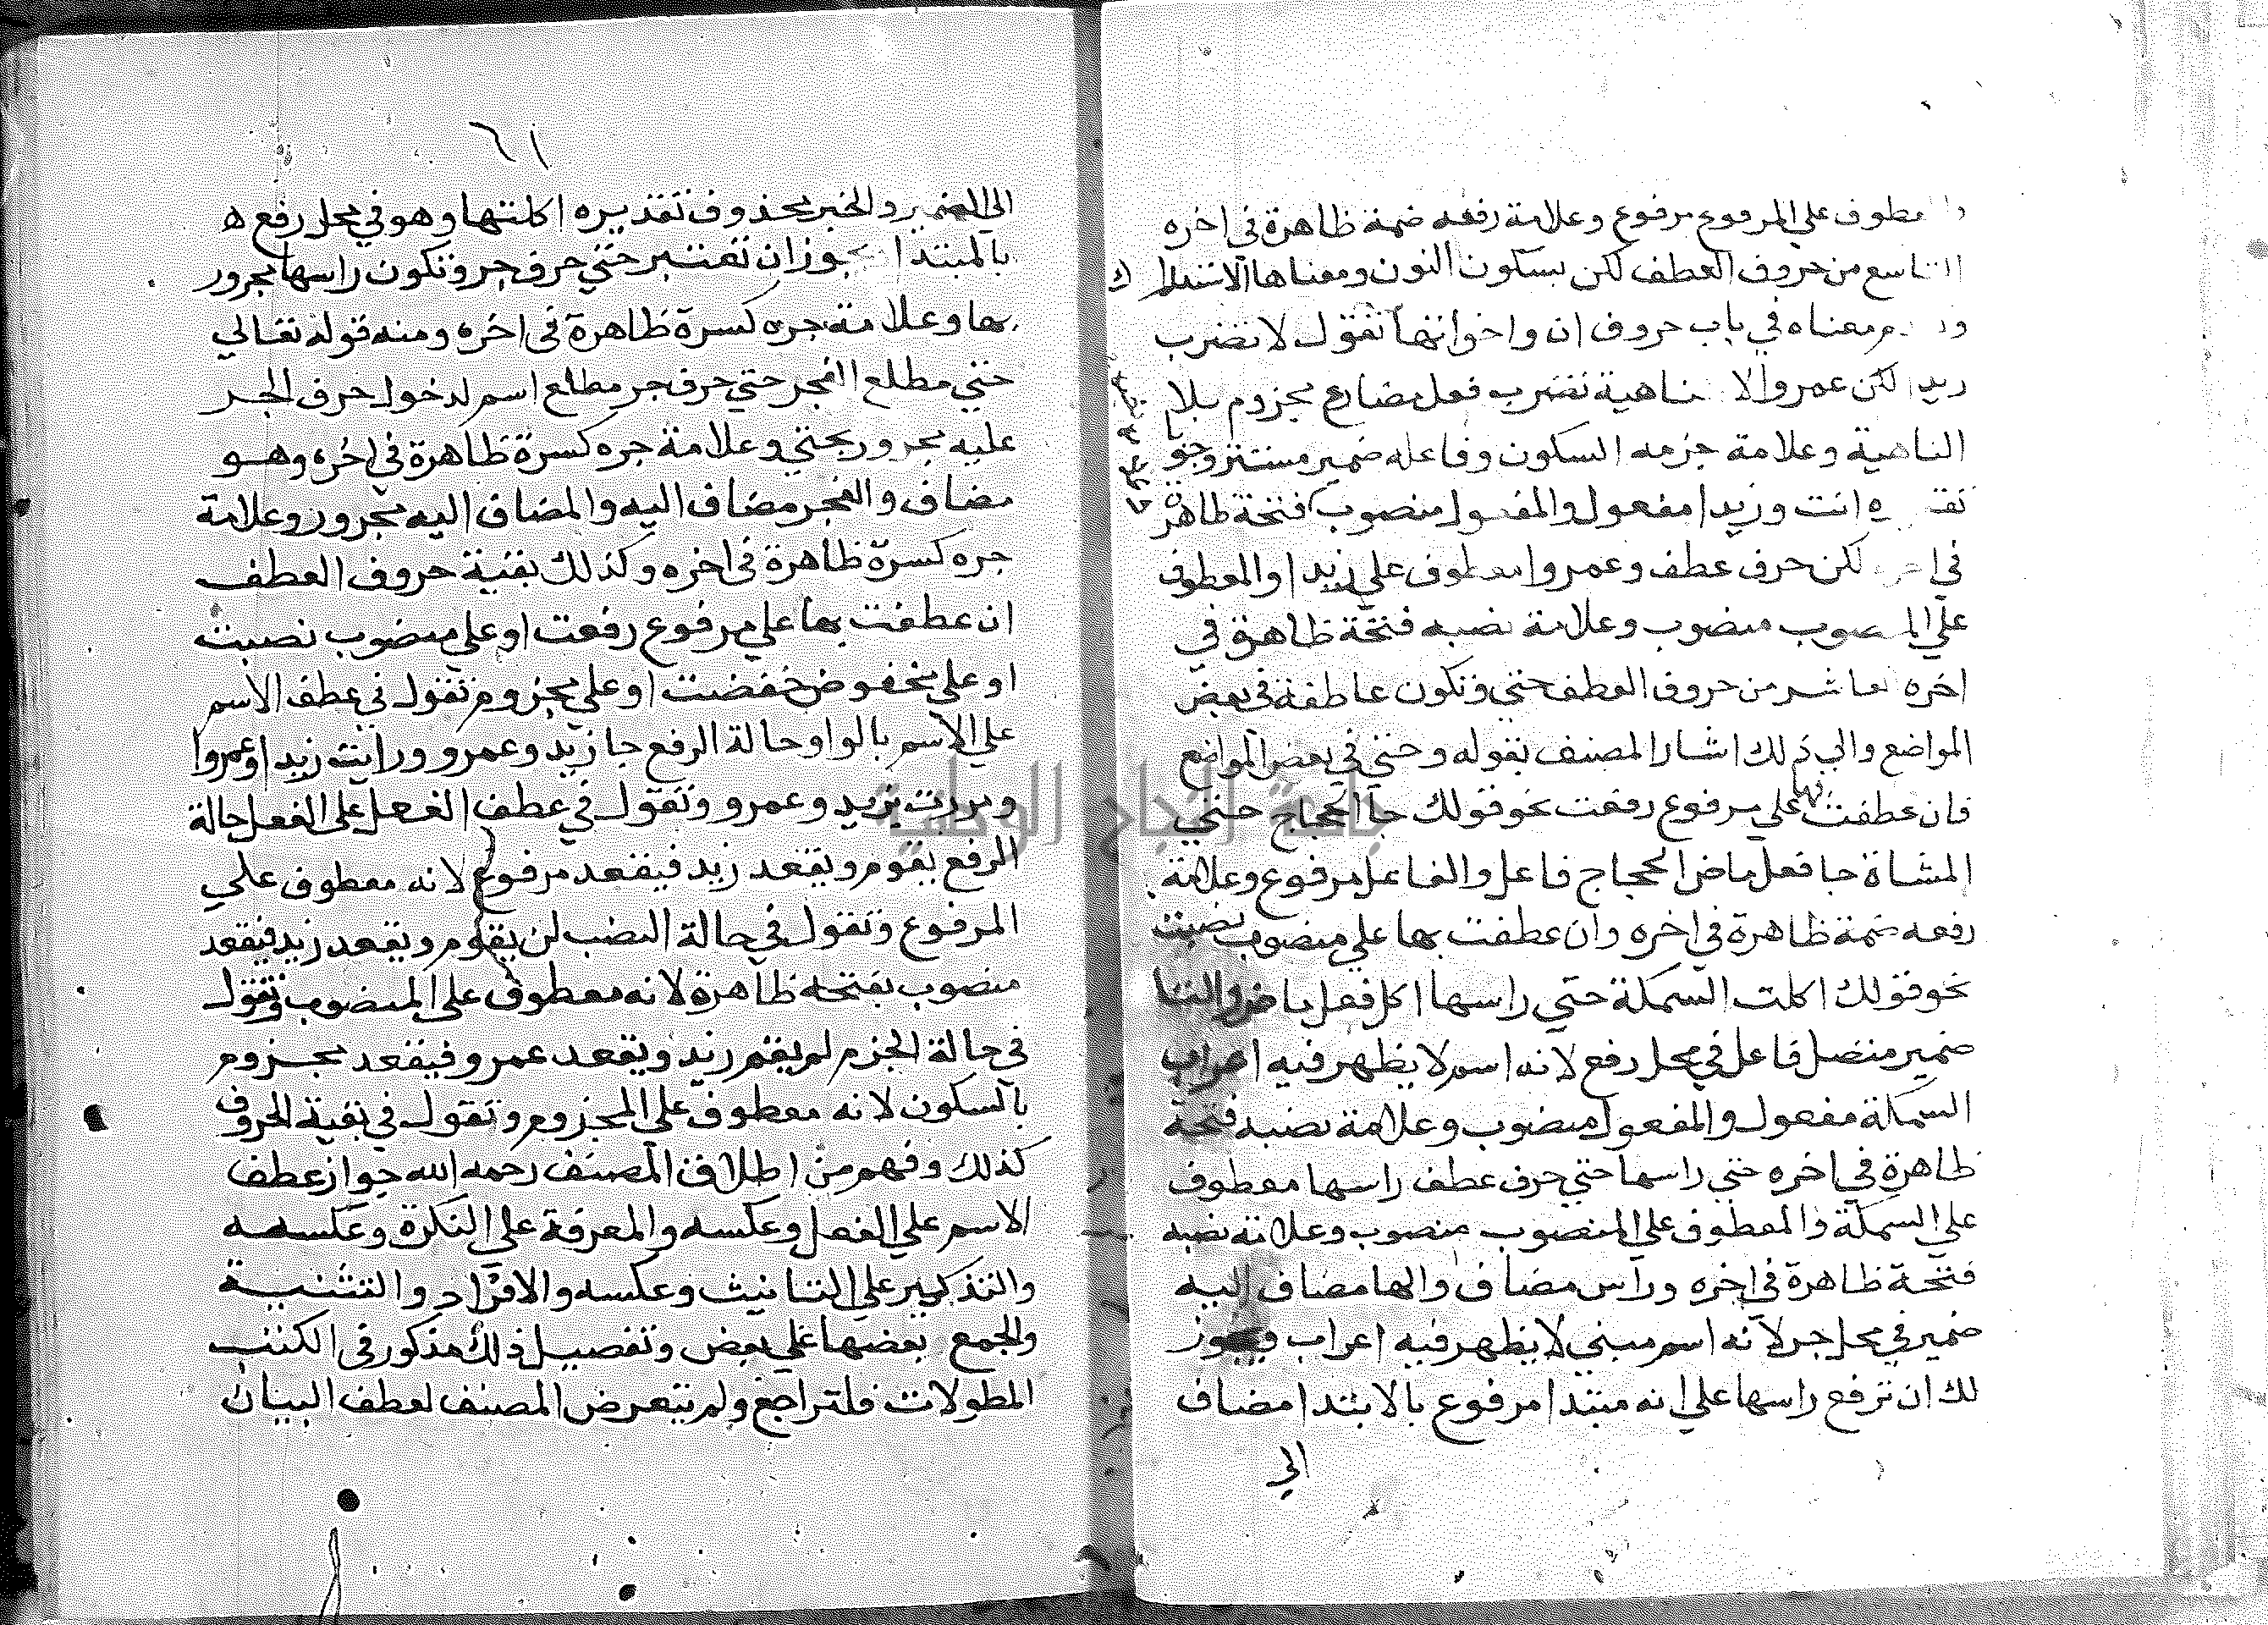 على المرفوع مرفوع وعلامة رفعه ضمة ظاهرة في اخره
من حروف العطف لكن بسكون النون ومعناها الاستدراك
معناه في باب حروف ان واخواتها تقول لا تضرب
زيدا لكن عمروا لا ناهية تضرب فعل مضارع مجزوم بلا
الناهية وعلامة جزمه السكون وفاعله ضمير مستتر وجوبا
انت وزيدا مفعول والمفعول منصوب فتحة ظاهرة
في لكن حرف عطف وعمروا معطوف علي زيدا والمعطوف
علي منصوب وعلامة نصبه فتحة ظاهرة في
اخره من حروف العطف حتي وتكون عاطفة في بعض
المواضع والي ذلك اشار المصنف بقوله وحتي في بعض المواضع
فان عطفت بها علي مرفوع رفعت نحو قولك جا الحجاج حتي
المشاة جا فعل ماض الحجاج فاعل والفاعل مرفوع وعلامة
رفعه ضمة ظاهرة في اخره وان عطفت بها علي منصوب نصبت
نحو قولك اكلت السمكة حتي راسها اكل فعل ماض والتا
ضمير متصل فاعل في محل رفع لانه اسم لا يظهر فيه اعراب
السمكة مفعول والمفعول منصوب وعلامة نصبه فتحة
ظاهرة في اخره حتي راسها حتي حرف عطف راسها معطوف
علي السمكة والمعطوف علي المنصوب منصوب وعلامة نصبه
فتحة ظاهرة في اخره وراس مضاف والها مضاف اليه
ضمير في محل جر لانه اسم مبني لا يظهر فيه اعراب ويجوز
لك ان ترفع راسها علي انه مبتدا مرفوع بالابتدا مضاف
الي
٦١
الي الضمير والخبر محذوف تقديره اكلتها وهو في محل رفع
بالمبتدا ان تعتبر حتي حرف جر وتكون راسها مجرور
بها وعلامة جره كسرة ظاهرة في اخره ومنه قوله تعالي
حتي مطلع الفجر حتي حرف جر مطلع اسم لدخول حرف الجر
عليه مجرور بحتي وعلامة جره كسرة ظاهرة في اخره وهو
مضاف والفجر مضاف اليه والمضاف اليه مجرور وعلامة
جره كسرة ظاهرة في اخره وكذلك بقية حروف العطف
ان عطفت بها علي مرفوع رفعت او علي منصوب نصبت
او علي مخفوض خفضت او علي مجزوم تقول في عطف الاسم
علي الاسم بالواو حالة الرفع جا زيد وعمرو ورايت زيدا وعمروا
ومررت بزيد وعمرو وتقول في عطف الفعل علي الفعل حالة
الرفع يقوم ويقعد زيد فيقعد مرفوع لانه معطوف علي
المرفوع وتقول في حالة النصب لن يقوم ويقعد زيد فيقعد
منصوب بفتحة ظاهرة لانه معطوف علي المنصوب وتقول
في حالة الجزم لم يقم زيد ويقعد عمرو فيقعد مجزوم
بالسكون لانه معطوف علي المجزوم وتقول في بقية الحروف
كذلك وفهم من اطلاق المصنف رحمه الله جواز عطف
الاسم علي الفعل وعكسه والمعرفة علي النكرة وعكسه
والتذكير علي التانيث وعكسه والافراد والتثنية
والجمع بعضها علي بعض وتفصيل ذلك مذكور في الكتب
المطولات فلتراجع ولم يتعرض المصنف لعطف البيان
جامعة النجاح الوطنية